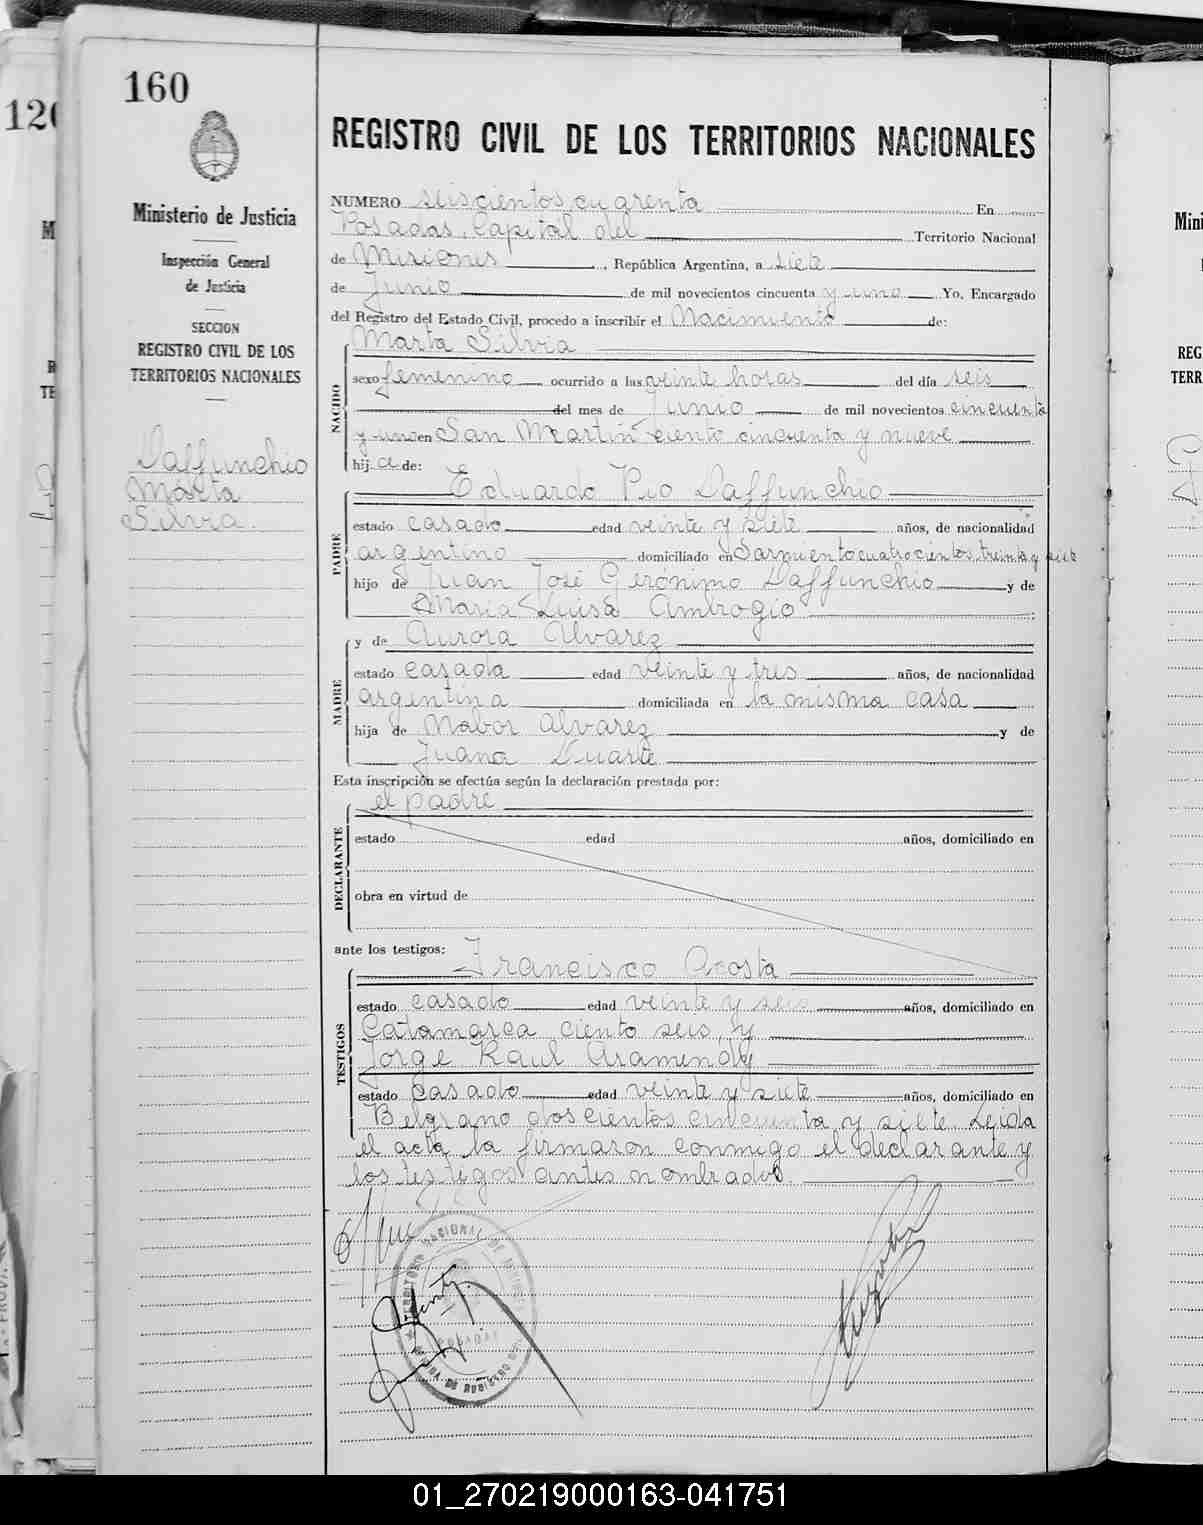 160
120
REGISTRO CIVIL DE LOS TERRITORIOS NACIONALES
Ministerio de Justicia
Inspección General
de Justicia
SECCION
REGISTRO CIVIL DE LOS
TERRITORIOS NACIONALES
Daffunchio
Marta
Silvia.
NUMERO seiscientos cuarenta En
Posadas, Capital del Territorio Nacional
de Misiones, República Argentina, a siete
de Junio de mil novecientos cincuenta y uno Yo, Encargado
del Registro del Estado Civil, procedo a inscribir el Nacimiento de:
NACIDO
Marta Silvia
sexo femenino ocurrido a las veinte horas del día seis
del mes de Junio de mil novecientos cincuenta
y uno en San Martín ciento cincuenta y nueve
hija de:
PADRE
Eduardo Pio Daffunchio
estado casado edad veinte y siete años, de nacionalidad
argentino domiciliado en Sarmiento cuatrocientos treinta y siete
hijo de Juan José Gerónimo Daffunchio y de
María Luisa Ambrogio
MADRE
y de Aurora Alvarez
estado casada edad veinte y tres años, de nacionalidad
argentina domiciliada en la misma casa
hija de Nabor Alvarez y de
Juana Duarte
Esta inscripción se efectúa según la declaración prestada por:
DECLARANTE
el padre
estado edad años, domiciliado en
obra en virtud de
ante los testigos:
TESTIGOS
Francisco Acosta
estado casado edad veinte y seis años, domiciliado en
Catamarca ciento seis, y
Jorge Raul Aramendy
estado casado edad veinte y siete años, domiciliado en
Belgrano doscientos cincuenta y siete. Leida
el acta la firmaron conmigo el declarante y
los testigos antes nombrados.
POSADAS
01_270219000163-041751